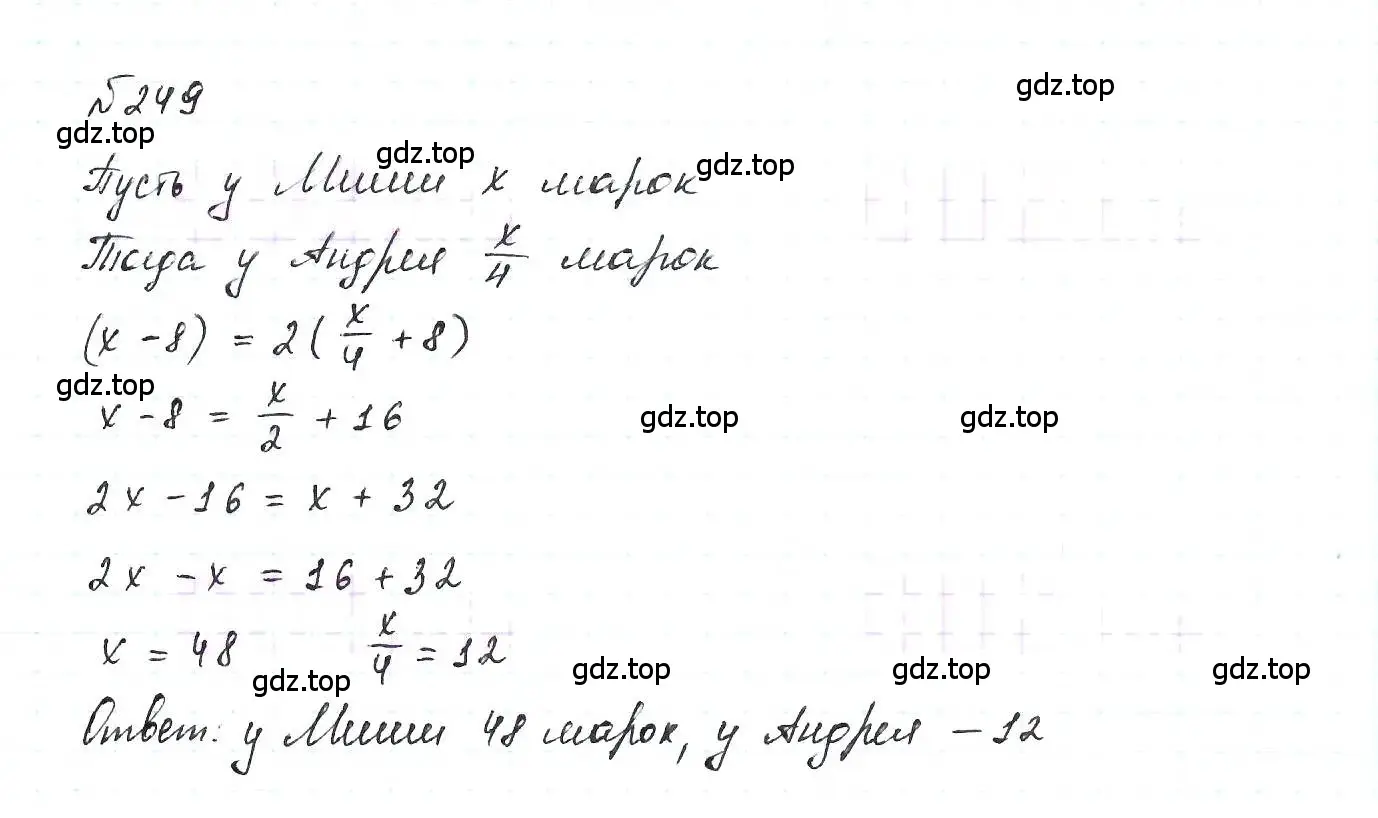 №249
gdz.top
gdz.top
gdz.top
gdz.top
Пусть у Миши x марок
Тогда у Андрея x/4 марок
(x - 8) = 2(x/4 + 8)
gdz.top
x - 8 = x/2 + 16
gdz.top
gdz.top
2x - 16 = x + 32
2x - x = 16 + 32
x = 48 x/4 = 12
gdz.top
gdz.top
gdz.top
gdz.top
Ответ: у Миши 48 марок, у Андрея - 12